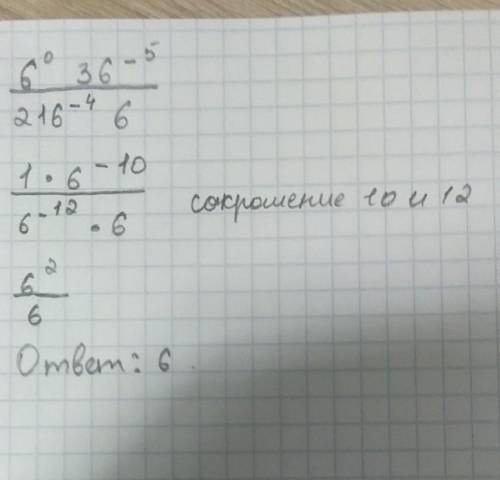 6⁰ 36⁻⁵
216⁻⁴ 6
1 · 6⁻¹⁰
6⁻¹² · 6
сокрошение 10 и 12
6²
6
Ответ: 6.